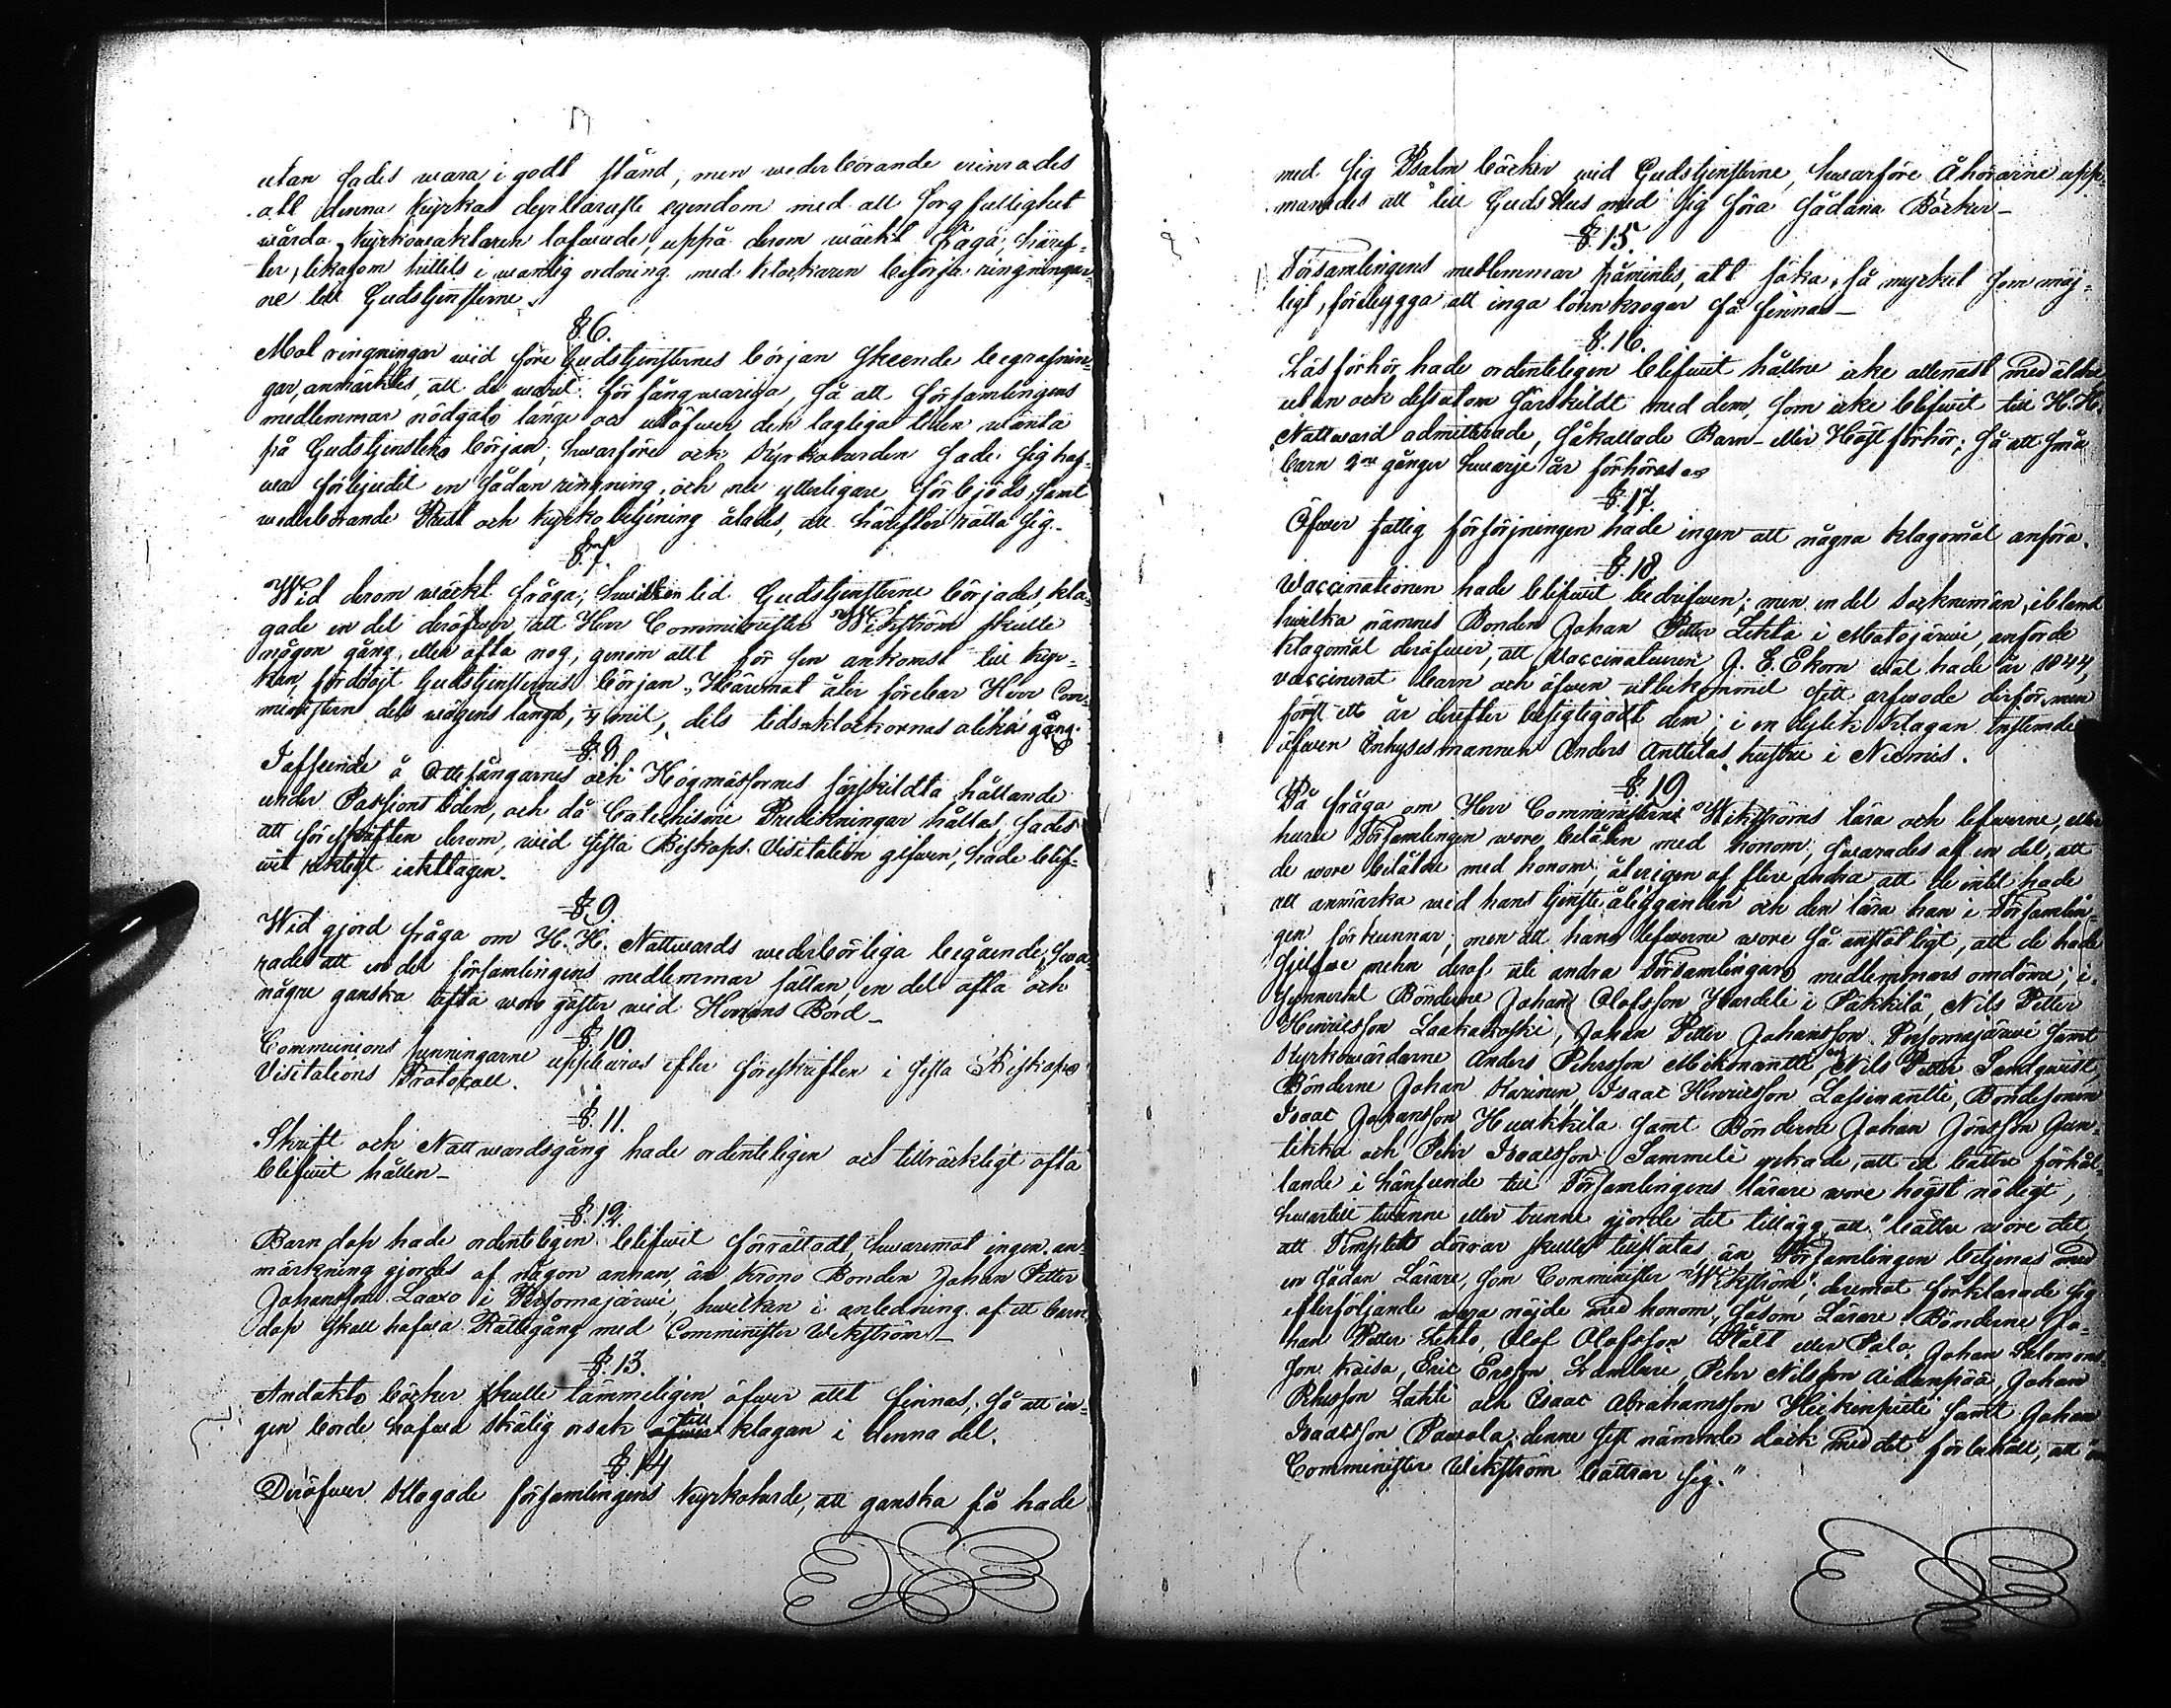 utan sades wara i godt stånd, men wederbörande
att denna Kyrkas dyrbaraste egendom med all sorgfällighet
wårda, Kyrkowaktaren lofwade, uppå derom wäckt fråga, häref-
ter, likasom hittils i wanlig ordning med Klockaren besörja ringningar-
ne till Gudstjensterne.
§. 6.
Mot ringningar wid före Gudstjensternes början skeende begrafnin-
gar, anmärktes, att de warit för långwariga, så att församlingens
medlemmar nödgats länge och utöfwer den lagliga tiden wänta
på Gudstjenstens början; hwarföre ock Kyrkoherden sade sig haf-
wa förbjudit en sådan ringning, och nu ytterligare förbjöds, samt
wederbörande Prest och Kyrkobetjening ålades, att härefter rätta sig.
§. 7.
Wid derom wäckt fråga, hwilken tid Gudstjensterne börjades, kla-
gade en del deröfwer att Herr Comminister Wikström skulle
någon gång, eller ofta nog, genom allt för sen ankomst till Kyr-
kan, fördröjt Gudstjensternes början. Häremot åter förebar Herr Com-
ministern dels wägens längd, ¼ mil, dels tids klockornas olika gång.
§. 8.
I afseende å Ottesångarnes och Högmässornes särskildta hållande
under Passions tiden, och då Catechismi Predikningar hållas, sades
att föreskriften derom, wid sista Biskops Visitation gifwen, hade blif-
wit riktigt iakttagen.
§. 9.
Wid gjord fråga om H. H. Nattwards wederbörliga begående, swa-
rades att en del församlingens medlemmar sällan, en del ofta och
några ganska ofta woro gäster wid Herrans Bord_
§. 10.
Communions penningarne uppbäras efter föreskriften i sista Biskops
Visitations Protocoll.
§. 11.
Skrift och Nattwardsgång hade ordenteligen och tillräckligt ofta
blifwit hållen_
§. 12.
Barndop hade ordenteligen blifwit förrättadt, hwaremot ingen an-
märkning gjordes af någon annan, än Krono Bonden Johan Petter
Johansson Laaxo i Persomajärwi, hwilken i anledning af ett barn-
dop skall hafwa Rättegång med Comminister Wikström_
§. 13.
Andakts böcker skulle tämmeligen öfwer allt finnas, så att in-
gen borde hafwa skälig orsak till klagan i denna del.
§. 14
Deröfwer klagade församlingens Kyrkoherde, att ganska få hade
med sig Psalmböcker wid Gudstjensterne, hwarföre Åhörarne upp-
manades att till Guds Hus med sig föra sådana Böcker_
§. 15.
Församlingens medlemmar påmintes, att söka, så mycket som möj-
ligt, förebygga att inga lönnkrogar få finnas_
§. 16.
Läsförhör hade ordenteligen blifwit hållne icke allenast med äldre
utan ock dessutom särskildt med dem, som icke blifwit till H. H.
Nattward admitterade, såkallade Barn- eller Höstförhör; så att små
barn 2ne gånger hwarje år förhöras
§. 17
Öfwer fattigförsörjningen hade ingen att några klagomål anföra.
§. 18
Vaccinationen hade blifwit bedrifwen; men en del Sockneman, ibland
hwilka nämnes Bonden Johan Petter Lehto i Matojärwi, anförde
klagomål deröfwer, att Vaccinateuren J. E. Ekorn wäl hade år 1844,
vaccinerat barn och äfwen utbekommit sitt arfwode derför, men
först ett år derefter besigtigadt dem; i en dylik klagan instemde
äfwen Inhysesmannen Anders Anttilas hustru i Niemis.
§. 19
På fråga om Herr Comministerns Wikströms lära och lefwerne, eller
huru Församlingen wore belåten med honom, swarades af en del, att
de wore belåtne med honom; återigen af flere andra att de intet hade
att anmärka wid hans tjenste åligganden och den lära han i Församlin-
gen förkunnar; men att hans lefwerne wore så anstötligt, att de hade
sjelfwe mehn deraf uti andra Församlingars medlemmars omdöme; i
synnerhet Bönderne Johan Olofsson Huardeli i Päkkilä, Nils Petter
Henriksson Laakakoski, Johan Petter Johansson Persomajärwi samt
Kyrkowärdarne Anders Pehrsson Mickonantti, och Nils Petter Sandqwist,
Bönderne Johan Karinen, Isaac Henriksson Lassinantti, Bondesonen
Isaac Johansson Huukkila samt Bönderne Johan Jönsson Jun-
tikka och Pehr Isacsson Sammeli yrkade, att ett bättre förhål-
lande i hänseende till Församlingens lärare wore högst nödigt,
hwartill twänne eller trenne gjorde det tillägg, att "bättre wore det
att Templets dörrar skulle tillslutas än Församlingen betjenas med
en sådan Lärare, som Comminister Wikström"; deremot förklarade sig
efterföljande wara nöjde med honom, såsom Lärare: Bönderne Jo-
han Petter Lehto, Olof Olofsson Ståll eller Palo, Johan Salomons-
son Kaisa, Eric Ersson Lambure, Pehr Nilsson Aidanpää, Johan
Pehrsson Lahti och Isaac Abrahamsson Heikinpieti samt Johan
Isaacsson Pawola; denne sist nämnde dock med det förbehåll, att "om
Comminister Wikström bättrar sig."